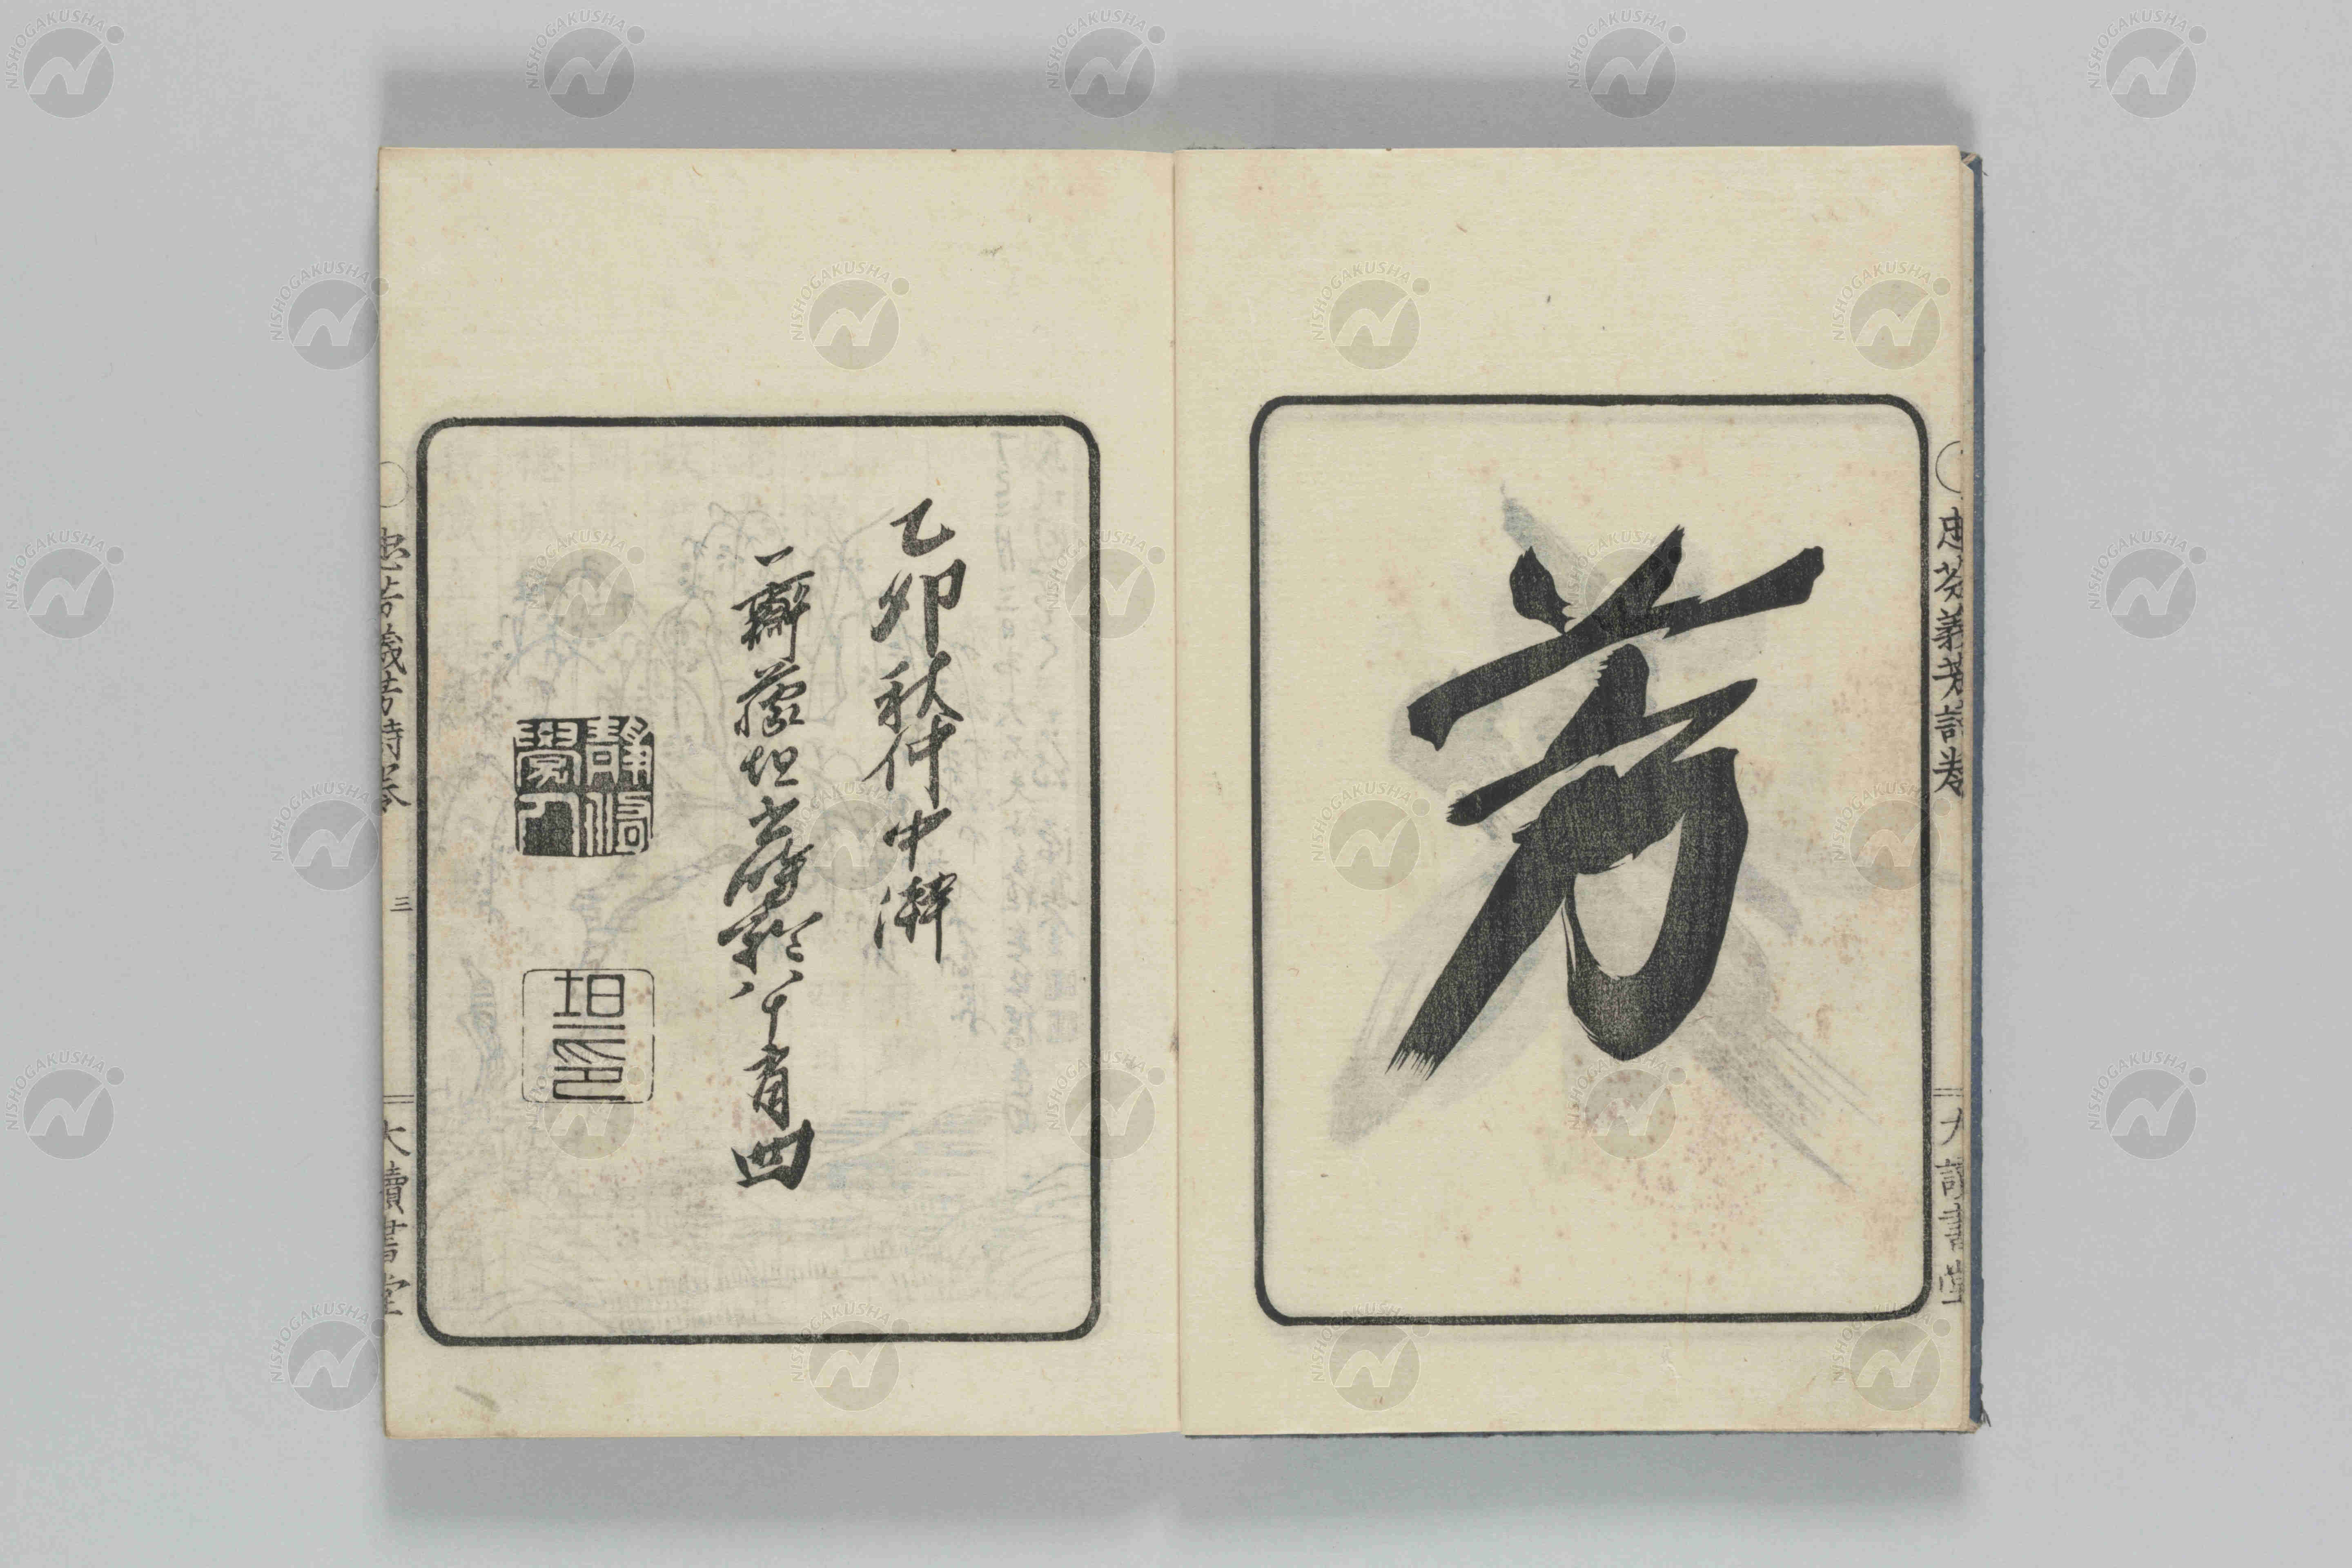 忠芬義芳詩卷
大讀書堂
芳
乙卯秋仲中澣
一齋藤坦書時齡八十有四
坦印
忠芬義芳詩卷
三
大讀書堂
NISHOGAKUSHA